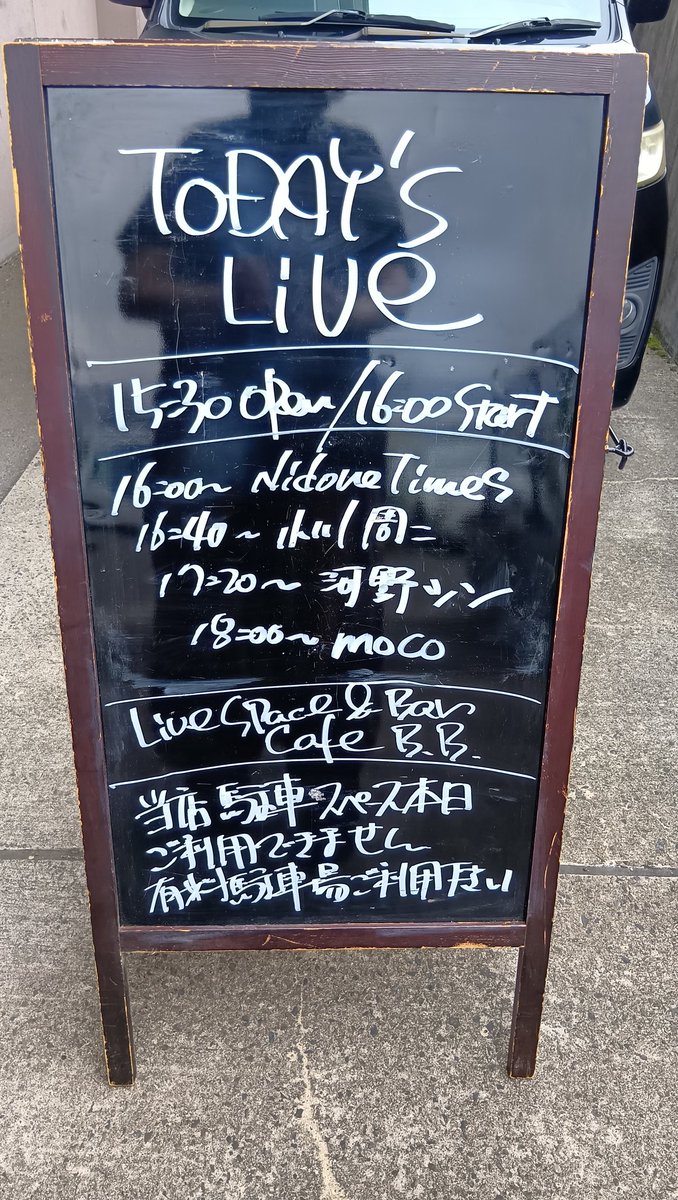 TODAY's
Live
15:30 open/16:00 Start
16:00~ Nidone Times
16:40~ 周二
17:20~ 河野シン
18:00~ moco
Live Space & Bar
Cafe B.B.
当店駐車スペース本日
ご利用できません
有料駐車場ご利用下さい